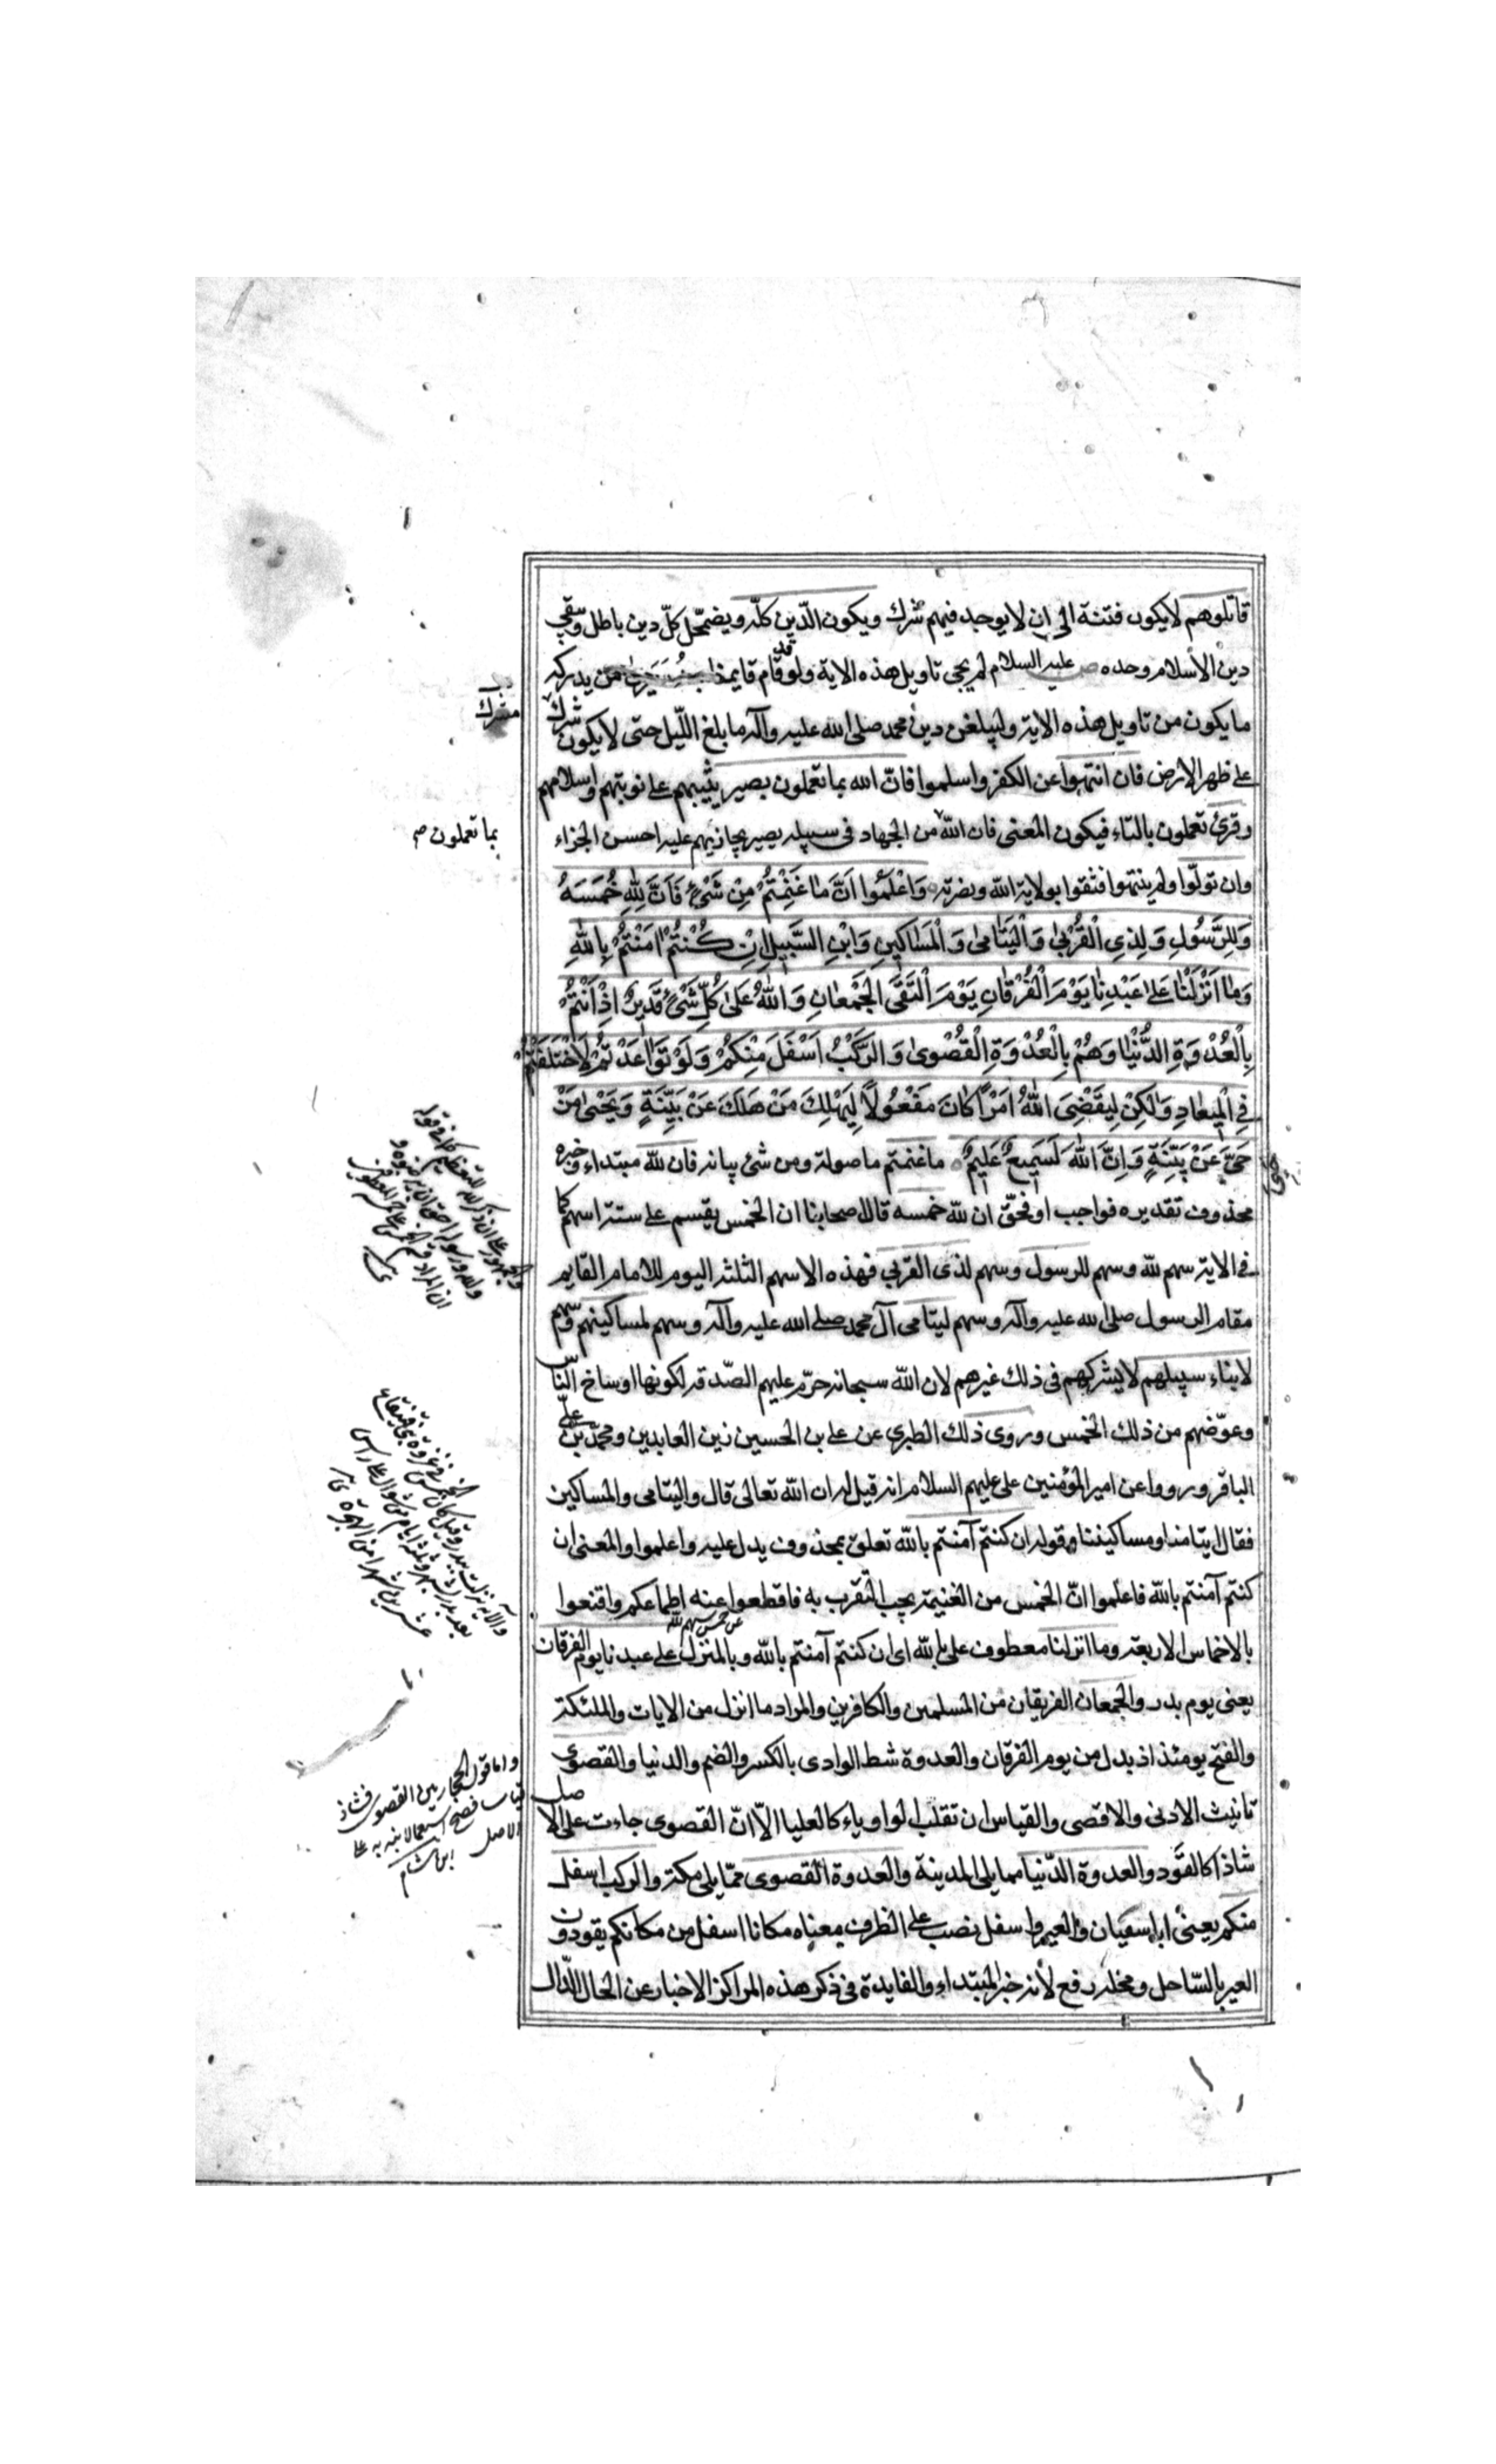 قاتلوهم لا يكون فتنة الى ان لا يوجد فيهم شرك ويكون الدّين كلّه ويضمحّل كلّ دين باطل ويبقى
دين الاسلام وحده ص عليه السلام لم يجئ تاويل هذه الاية ولو قد قام قايمنا من يدركه
ما يكون من تاويل هذه الاية وليبلغن دين محمد صلى الله عليه وآله ما بلغ اللّيل حتى لا يكون شرك
مشرك
على ظهر الارض فان انتهوا عن الكفر واسلموا فانّ الله بما تعملون بصير يثيبهم على توبتهم واسلامهم
وقرئ تعملون بالتاء فيكون المعنى فان الله من الجهاد فى سبيله بصير يجازيهم عليه احسن الجزاء
بما تعملون ص
وان تولّوا ولم ينتهوا فثقوا بولاية الله ونصرته وَاعْلَمُوا اَنَّ مٰا غَنِمْتُمْ مِنْ شَيْءٍ فَاَنَّ لِلّٰهِ خُمُسَهُ
وَلِلرَّسُولِ وَلِذِي الْقُرْبىٰ وَالْيَتٰامىٰ وَالْمَسٰاكِينِ وَابْنِ السَّبِيلِ اِنْ كُنْتُمْ اٰمَنْتُمْ بِاللّٰهِ
وَمٰا اَنْزَلْنٰا عَلىٰ عَبْدِنٰا يَوْمَ الْفُرْقٰانِ يَوْمَ الْتَقَى الْجَمْعٰانِ وَاللّٰهُ عَلىٰ كُلِّ شَيْءٍ قَدِيرٌ اِذْ اَنْتُمْ
بِالْعُدْوَةِ الدُّنْيٰا وَهُمْ بِالْعُدْوَةِ الْقُصْوىٰ وَالرَّكْبُ اَسْفَلَ مِنْكُمْ وَلَوْ تَوٰاعَدْتُمْ لَاخْتَلَفْتُمْ
فِي الْمِيعٰادِ وَلٰكِنْ لِيَقْضِيَ اللّٰهُ اَمْرًا كٰانَ مَفْعُولًا لِيَهْلِكَ مَنْ هَلَكَ عَنْ بَيِّنَةٍ وَيَحْيىٰ مَنْ
حَيَّ عَنْ بَيِّنَةٍ وَاِنَّ اللّٰهَ لَسَمِيعٌ عَلِيمٌ ما غنمتم ما صولة ومن شئ بيانه فان لله مبتداء وخبره
محذوف تقديره فواجب او فحقّ ان لله خمسه قال اصحابنا ان الخمس يقسم على ستة اسهم كما
فى الاية سهم لله وسهم للرسول وسهم لذى القربى فهذه الاسهم الثلثة اليوم للامام القايم
مقام الرسول صلى الله عليه وآله وسهم ليتامى آل محمد صلى الله عليه وآله وسهم لمساكينهم وسهم
لابناء سبيلهم لا يشركهم فى ذلك غيرهم لان الله سبحانه حرّم عليهم الصّدقة لكونها اوساخ النّاس
وعوّضهم من ذلك الخمس وروى ذلك الطبرى عن على بن الحسين زين العابدين ومحمّد بن علىّ
الباقر ورووا عن امير المؤمنين على عليهم السلام انه قيل له ان الله تعالى قال واليتامى والمساكين
فقال ايتامنا ومساكيننا وقوله ان كنتم آمنتم بالله تعلق بمحذوف يدل عليه واعلموا والمعنى ان
كنتم آمنتم بالله فاعلموا انّ الخمس من الغنيمة يجب التقرب به فاقطعوا عنه اطماعكم واقتنعوا
بالاخماس الاربعة وما انزلنا معطوف على بالله اى ان كنتم آمنتم بالله وبالمنزل على عبدنا يوم الفرقان
يعنى يوم بدر والجمعان الفريقان من المسلمين والكافرين والمراد ما انزل من الايات والملئكة
والفتح يومئذ اذ بدل من يوم الفرقان والعدوة شط الوادى بالكسر والضم والدنيا والقصوى
تانيث الادنى والاقصى والقياس ان تقلب الواو ياء كالعليا الاّ انّ القصوى جاءت على الاصل
شاذا كالقَود والعدوة الدّنيا مما يلى المدينة والعدوة القصوى ممّا يلى مكة والركب اسفل
منكم يعنى ابا سفيان والعير واسفل نصب على الظرف معناه مكانا اسفل من مكانكم يقودون
العير بالسّاحل ومحلّه رفع لأنه خبر المبتداء والفايدة فى ذكر هذه المراكز الاخبار عن الحال الدّال